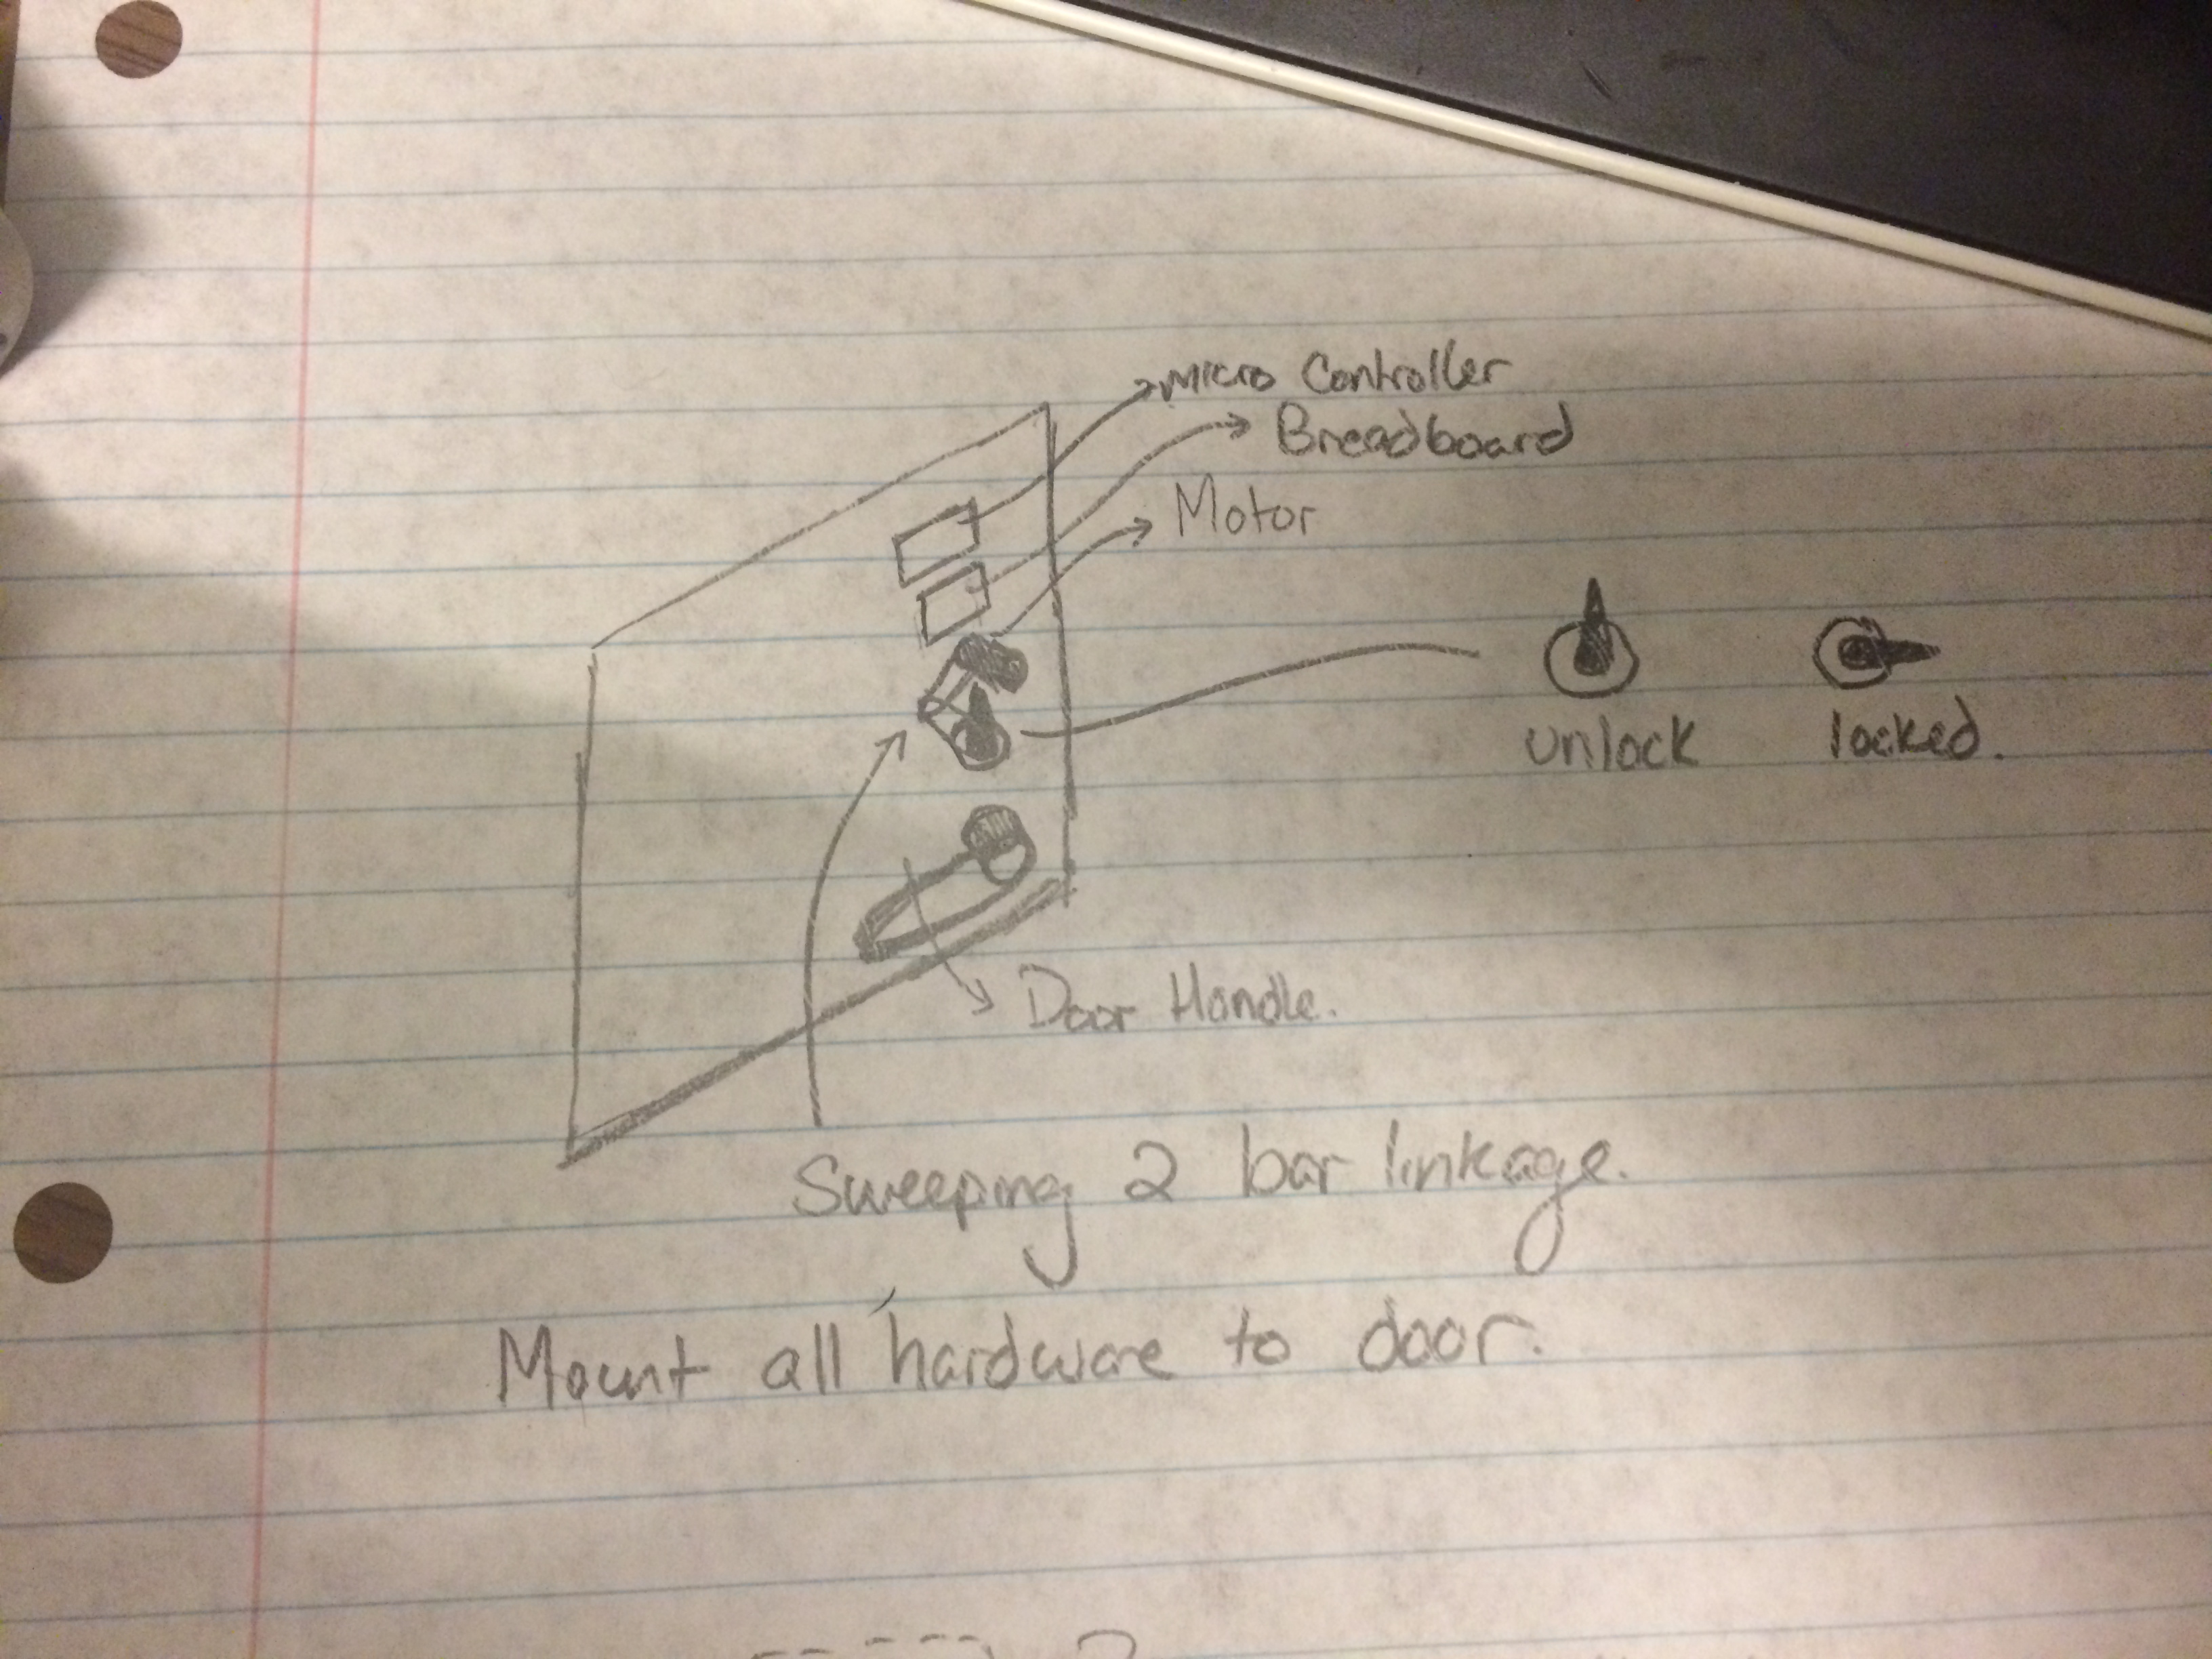 Micro Controller
Breadboard
Motor
unlock locked.
Door Handle.
Sweeping 2 bar linkage.
Mount all hardware to door.